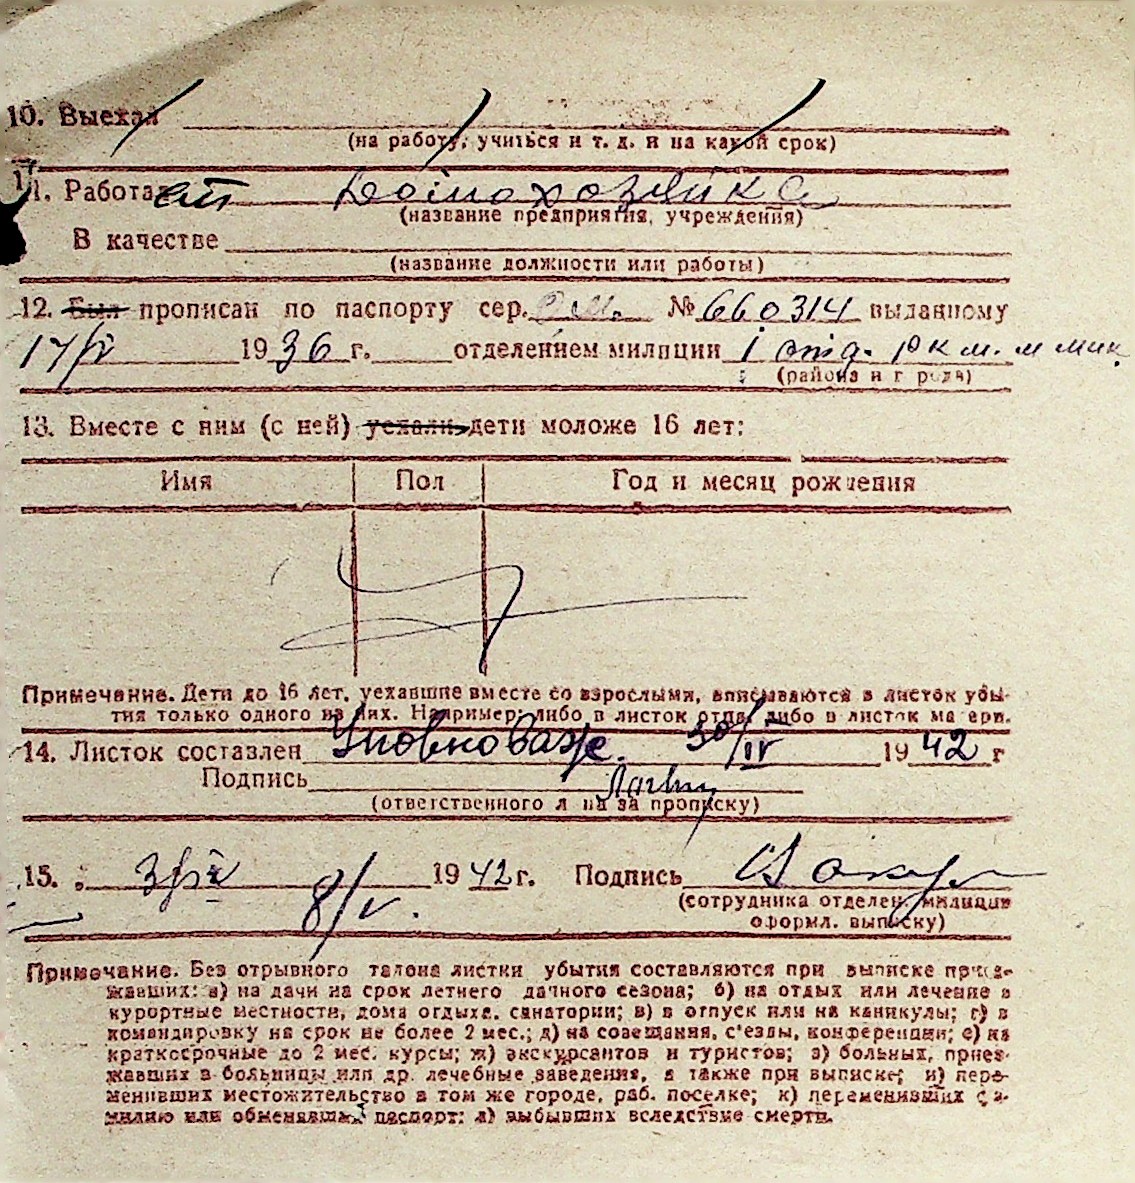 10. Выехал
(на работу, учиться и т. д. и на какой срок)
11. Работает Домохозяйка
(название предприятия, учреждения)
В качестве
(название должности или работы)
12. Был прописан по паспорту сер. № 660314 выданному
17/V 1936 г. отделением милиции 1 отд. р к м. м
(района и города)
13. Вместе с ним (с ней) уехали дети моложе 16 лет:
Имя Пол Год и месяц рождения
Примечание. Дети до 16 лет, уехавшие вместе со взрослыми, вписываются в листок убы-
тия только одного из них. Например: либо в листок отца, либо в листок матери.
14. Листок составлен Уповноваж. 30/IV 1942 г
Подпись
(ответственного лица за прописку)
15. 8/V. 1942 г. Подпись
(сотрудника отделен. милиции
оформл. выписку)
Примечание. Без отрывного талона листки убытия составляются при выписке приез-
жавших: а) на дачи на срок летнего дачного сезона; б) на отдых или лечение в
курортные местности, дома отдыха, санатории; в) в отпуск или на каникулы; г) в
командировку на срок не более 2 мес.; д) на совещания, с'езды, конференции; е) на
краткосрочные до 2 мес. курсы; ж) экскурсантов и туристов; з) больных, приез-
жавших в больницы или др. лечебные заведения, а также при выписке; и) пере-
менивших местожительство в том же городе, раб. поселке; к) переменивших фа-
милию или обменявших паспорт; л) выбывших вследствие смерти.